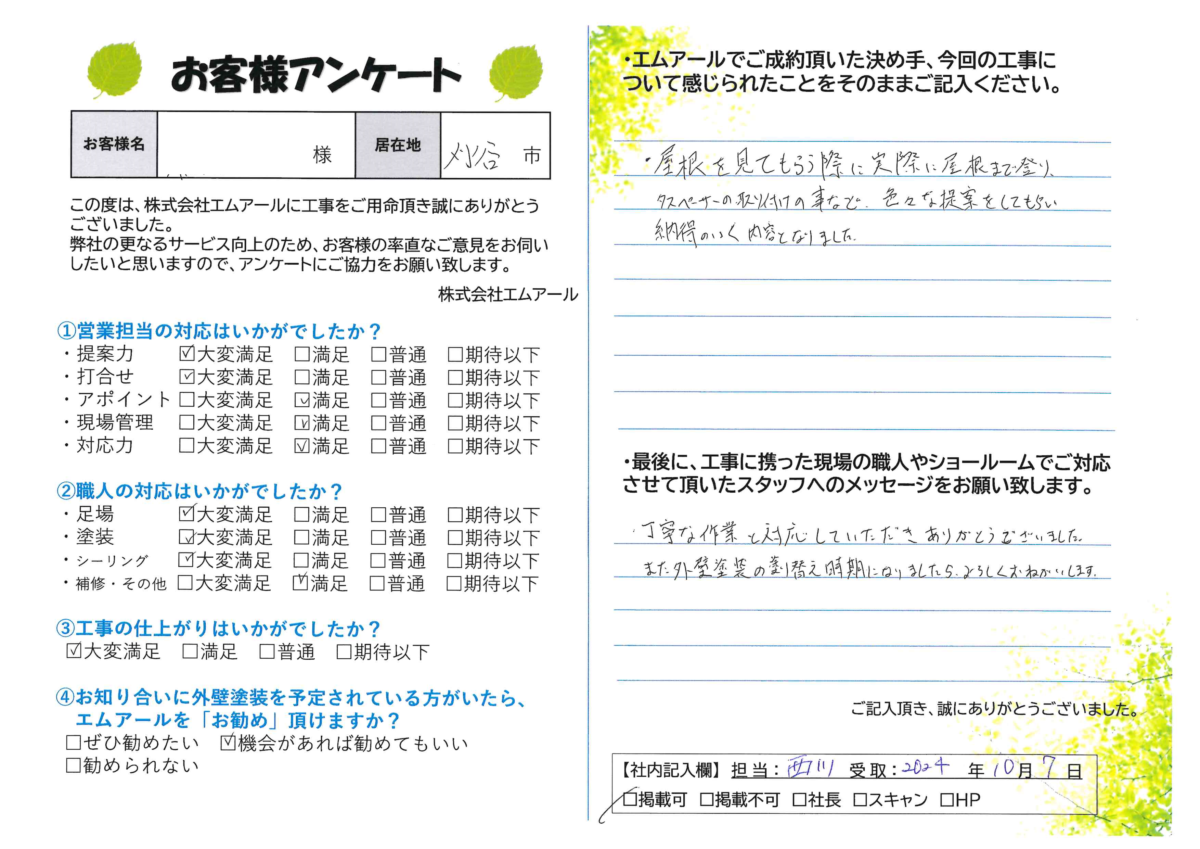 お客様アンケート
お客様名 様 居在地 刈谷 市
この度は、株式会社エムアールに工事をご用命頂き誠にありがとう
ございました。
弊社の更なるサービス向上のため、お客様の率直なご意見をお伺い
したいと思いますので、アンケートにご協力をお願い致します。
株式会社エムアール
①営業担当の対応はいかがでしたか？
・提案力 ☑大変満足 □満足 □普通 □期待以下
・打合せ ☑大変満足 □満足 □普通 □期待以下
・アポイント □大変満足 ☑満足 □普通 □期待以下
・現場管理 □大変満足 ☑満足 □普通 □期待以下
・対応力 □大変満足 ☑満足 □普通 □期待以下
②職人の対応はいかがでしたか？
・足場 ☑大変満足 □満足 □普通 □期待以下
・塗装 ☑大変満足 □満足 □普通 □期待以下
・シーリング ☑大変満足 □満足 □普通 □期待以下
・補修・その他 □大変満足 ☑満足 □普通 □期待以下
③工事の仕上がりはいかがでしたか？
☑大変満足 □満足 □普通 □期待以下
④お知り合いに外壁塗装を予定されている方がいたら、
エムアールを「お勧め」頂けますか？
□ぜひ勧めたい ☑機会があれば勧めてもいい
□勧められない
・エムアールでご成約頂いた決め手、今回の工事に
ついて感じられたことをそのままご記入ください。
・屋根を見てもらう際に実際に屋根まで登り、
タスペーサーの取り付けの事など、色々な提案をしてもらい
納得のいく内容となりました。
・最後に、工事に携った現場の職人やショールームでご対応
させて頂いたスタッフへのメッセージをお願い致します。
・丁寧な作業と対応していただきありがとうございました。
また外壁塗装の塗り替え時期になりましたら、よろしくおねがいします。
ご記入頂き、誠にありがとうございました。
【社内記入欄】担当：西川 受取：2024 年 10月 7 日
☑掲載可 □掲載不可 □社長 □スキャン □HP